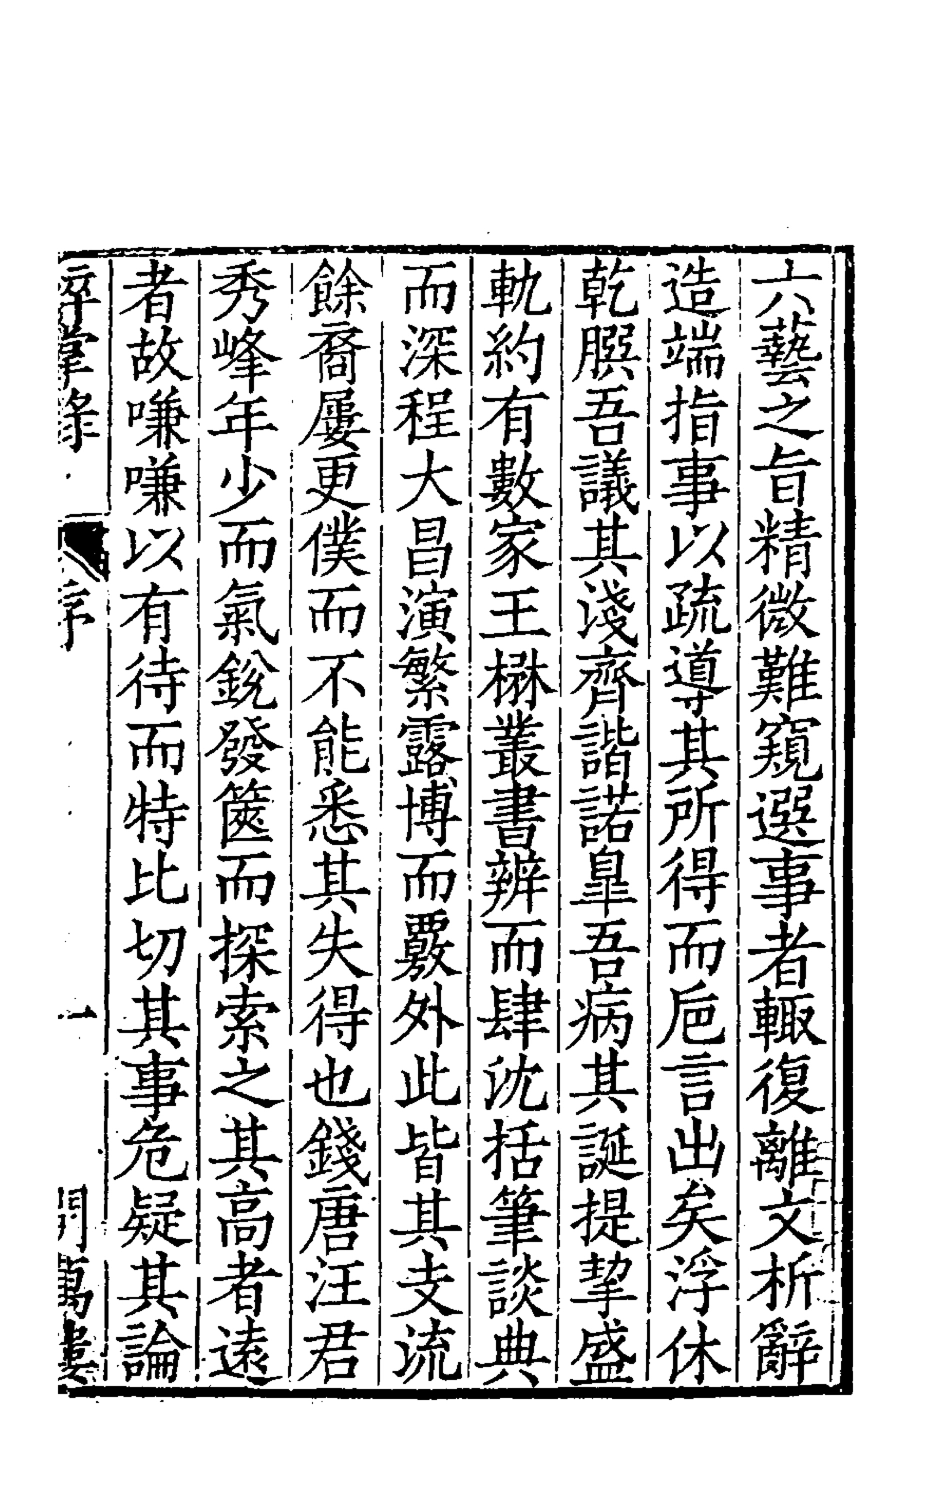 六藝之旨精微難窺選事者輙復離文析辭
造端指事以疏導其所得而巵言出矣浮休
乾𦠆吾議其淺齊諧諾臯吾病其誕提挈盛
軌約有數家王楙叢書辨而肆沈括筆談典
而深程大昌演繁露博而覈外此皆其支流
餘裔屢更僕而不能悉其失得也錢唐汪君
秀峰年少而氣銳發篋而探索之其高者遠
者故嗛嗛以有待而特比切其事危疑其論
序
一